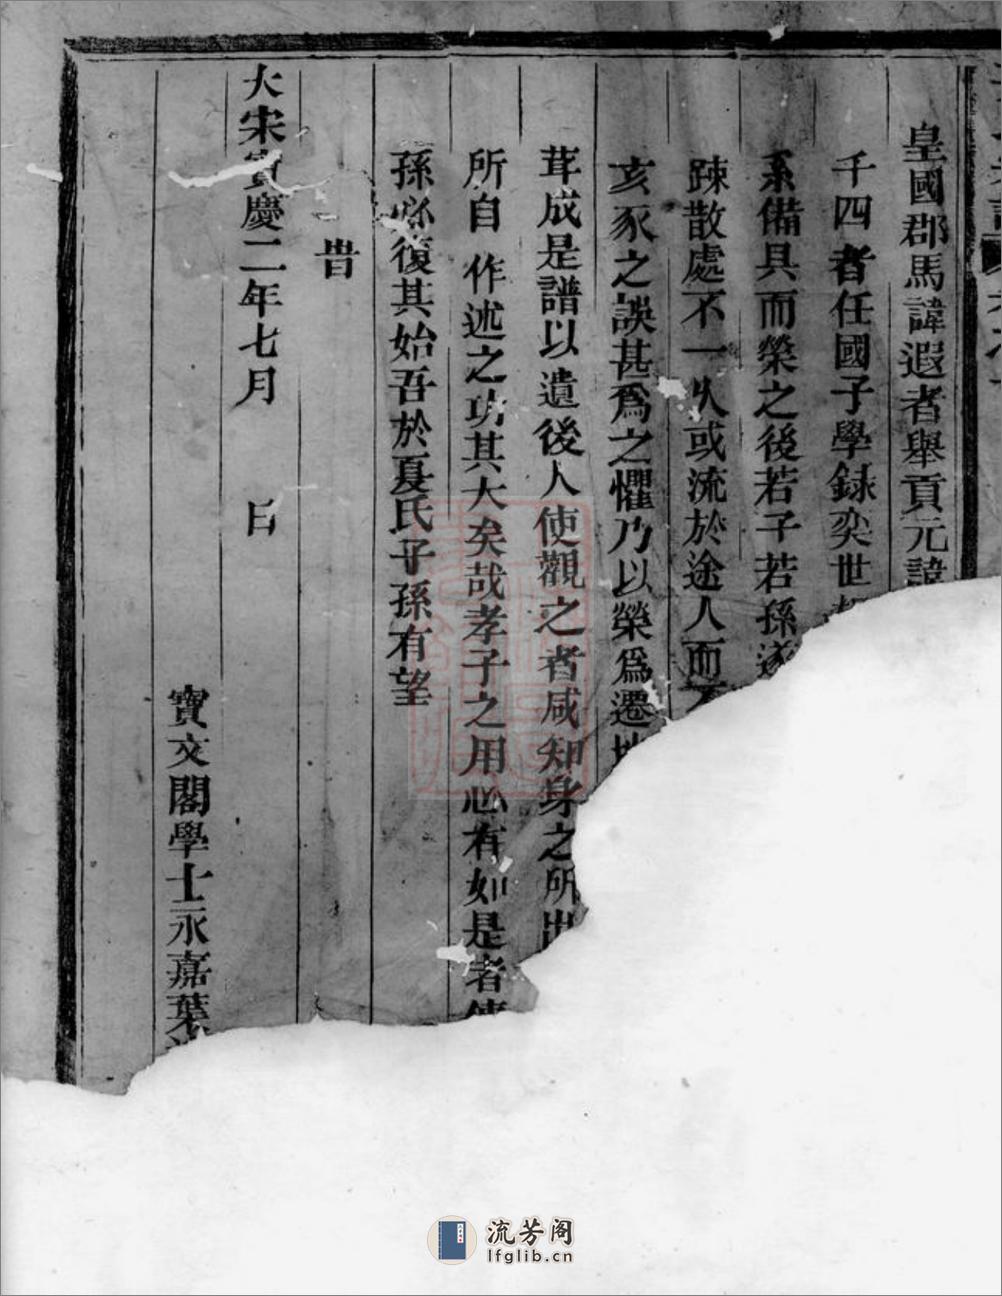 皇國郡馬諱遐者舉貢元諱
千四者任國子學録奕世
系備具而榮之後若子若孫遂
踈散處不一久或流於途人而不
亥豕之誤甚爲之懼乃以榮爲遷地
茸成是譜以遺後人使觀之者咸知身之所出
所自 作述之功其大矣哉孝子之用心有如是者
孫必復其始吾於夏氏子孫有望
旹
大宋寳慶二年七月 日
寶文閣學士永嘉葉
流芳阁
lfglib.cn